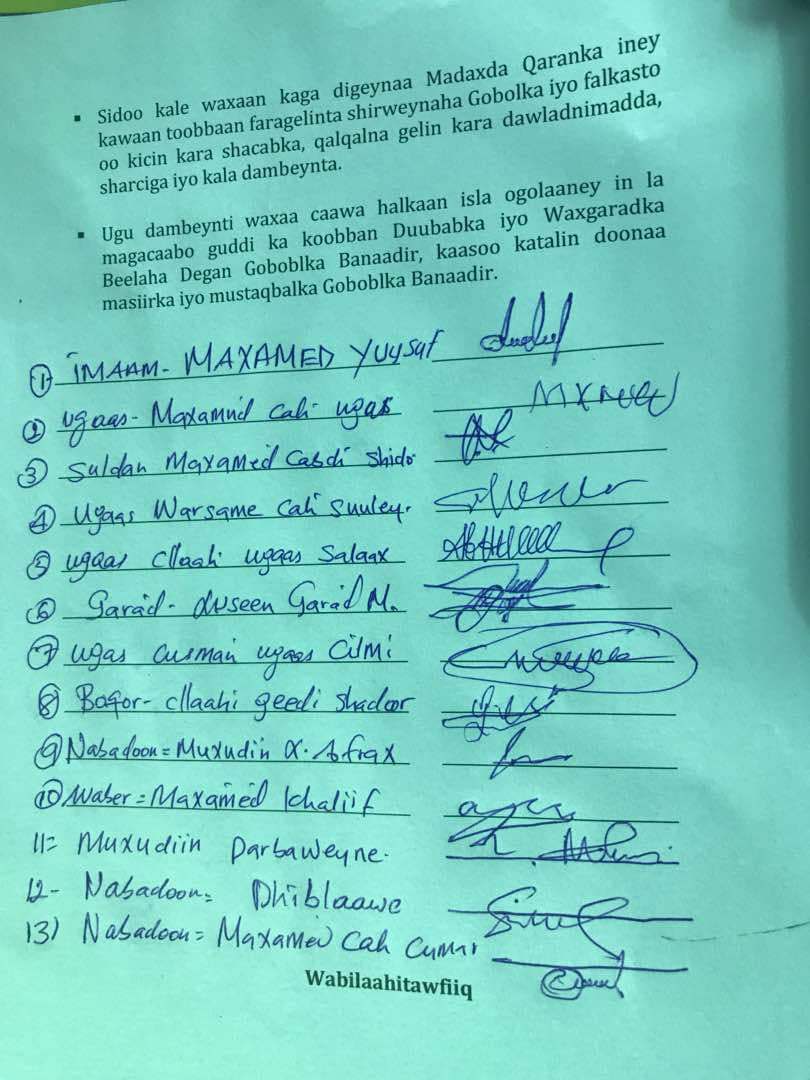 ▪ Sidoo kale waxaan kaga digeynaa Madaxda Qaranka iney
kawaan toobbaan faragelinta shirweynaha Gobolka iyo falkasto
oo kicin kara shacabka, qalqalna gelin kara dawladnimadda,
sharciga iyo kala dambeynta.
▪ Ugu dambeynti waxaa caawa halkaan isla ogolaaney in la
magacaabo guddi ka koobban Duubabka iyo Waxgaradka
Beelaha Degan Goboblka Banaadir, kaasoo katalin doonaa
masiirka iyo mustaqbalka Goboblka Banaadir.
① IMAAM- MAXAMED YUUSUF
② Ugaas- Maxamuud Cali ugas
③ Suldan Maxamed Cabdi Shido
④ Ugaas Warsame Cali Suuley.
⑤ ugaas Cllaahi ugaas Salaax
⑥ Garaad- Garaad M.
⑦ Ugas Cusman ugaas Cilmi
⑧ Boqor- Cllaahi geedi shadoor
⑨ Nabadoon = Muxudin X. Afrax
⑩ Waber = Maxamed Khaliif
11= Muxudiin Darbaweyne.
12- Nabadoon= Dhiblaawe
13) Nabadoon = Maxamed Cali Cumar
Wabilaahitawfiiq